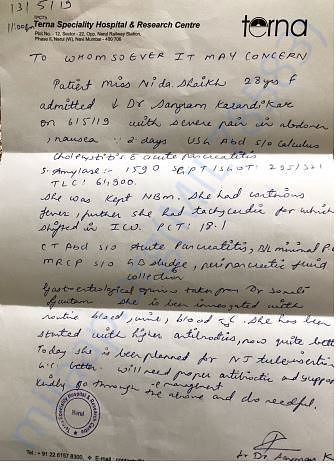 13/5/19
11:00am
Terna Speciality Hospital & Research Centre
terna
Plot No. - 12, Sector - 22, Opp. Nerul Railway Station,
Phase II, Nerul (W), Navi Mumbai - 400 706
TO WHOMSOEVER IT MAY CONCERN
Patient Miss Nida Shaikh 28 yrs F
admitted ↓ Dr Sangram Karandikar
on 6/5/19 with severe pain in abdomen,
nausea 2 days USG Abd s/o calculus
cholecystitis & acute pancreatitis
S. Amylase :- 1590 SGPT/SGOT: 295/321
TLC: 61,900.
She was kept NBM. She had continous
fever, further she had tachycardia for which
shifted in ICU. PCT: 18.1
CT Abd s/o Acute Pancreatitis, B/L minimal
MRCP s/o GB sludge, peripancreatic fluid
collection
Gastroenterological opinion taken from Dr Sonali
Gautam She is been investigated with
routine blood, urine, blood c/s. She has been
started with higher antibiotics, now quite better
Today she is been planned for NJ tube insertion
will need proper antibiotic and
Kindly go through the above and do needful.
Terna Speciality Hospital & Research Centre
Nerul
Tel : + 91 22 6157 8300